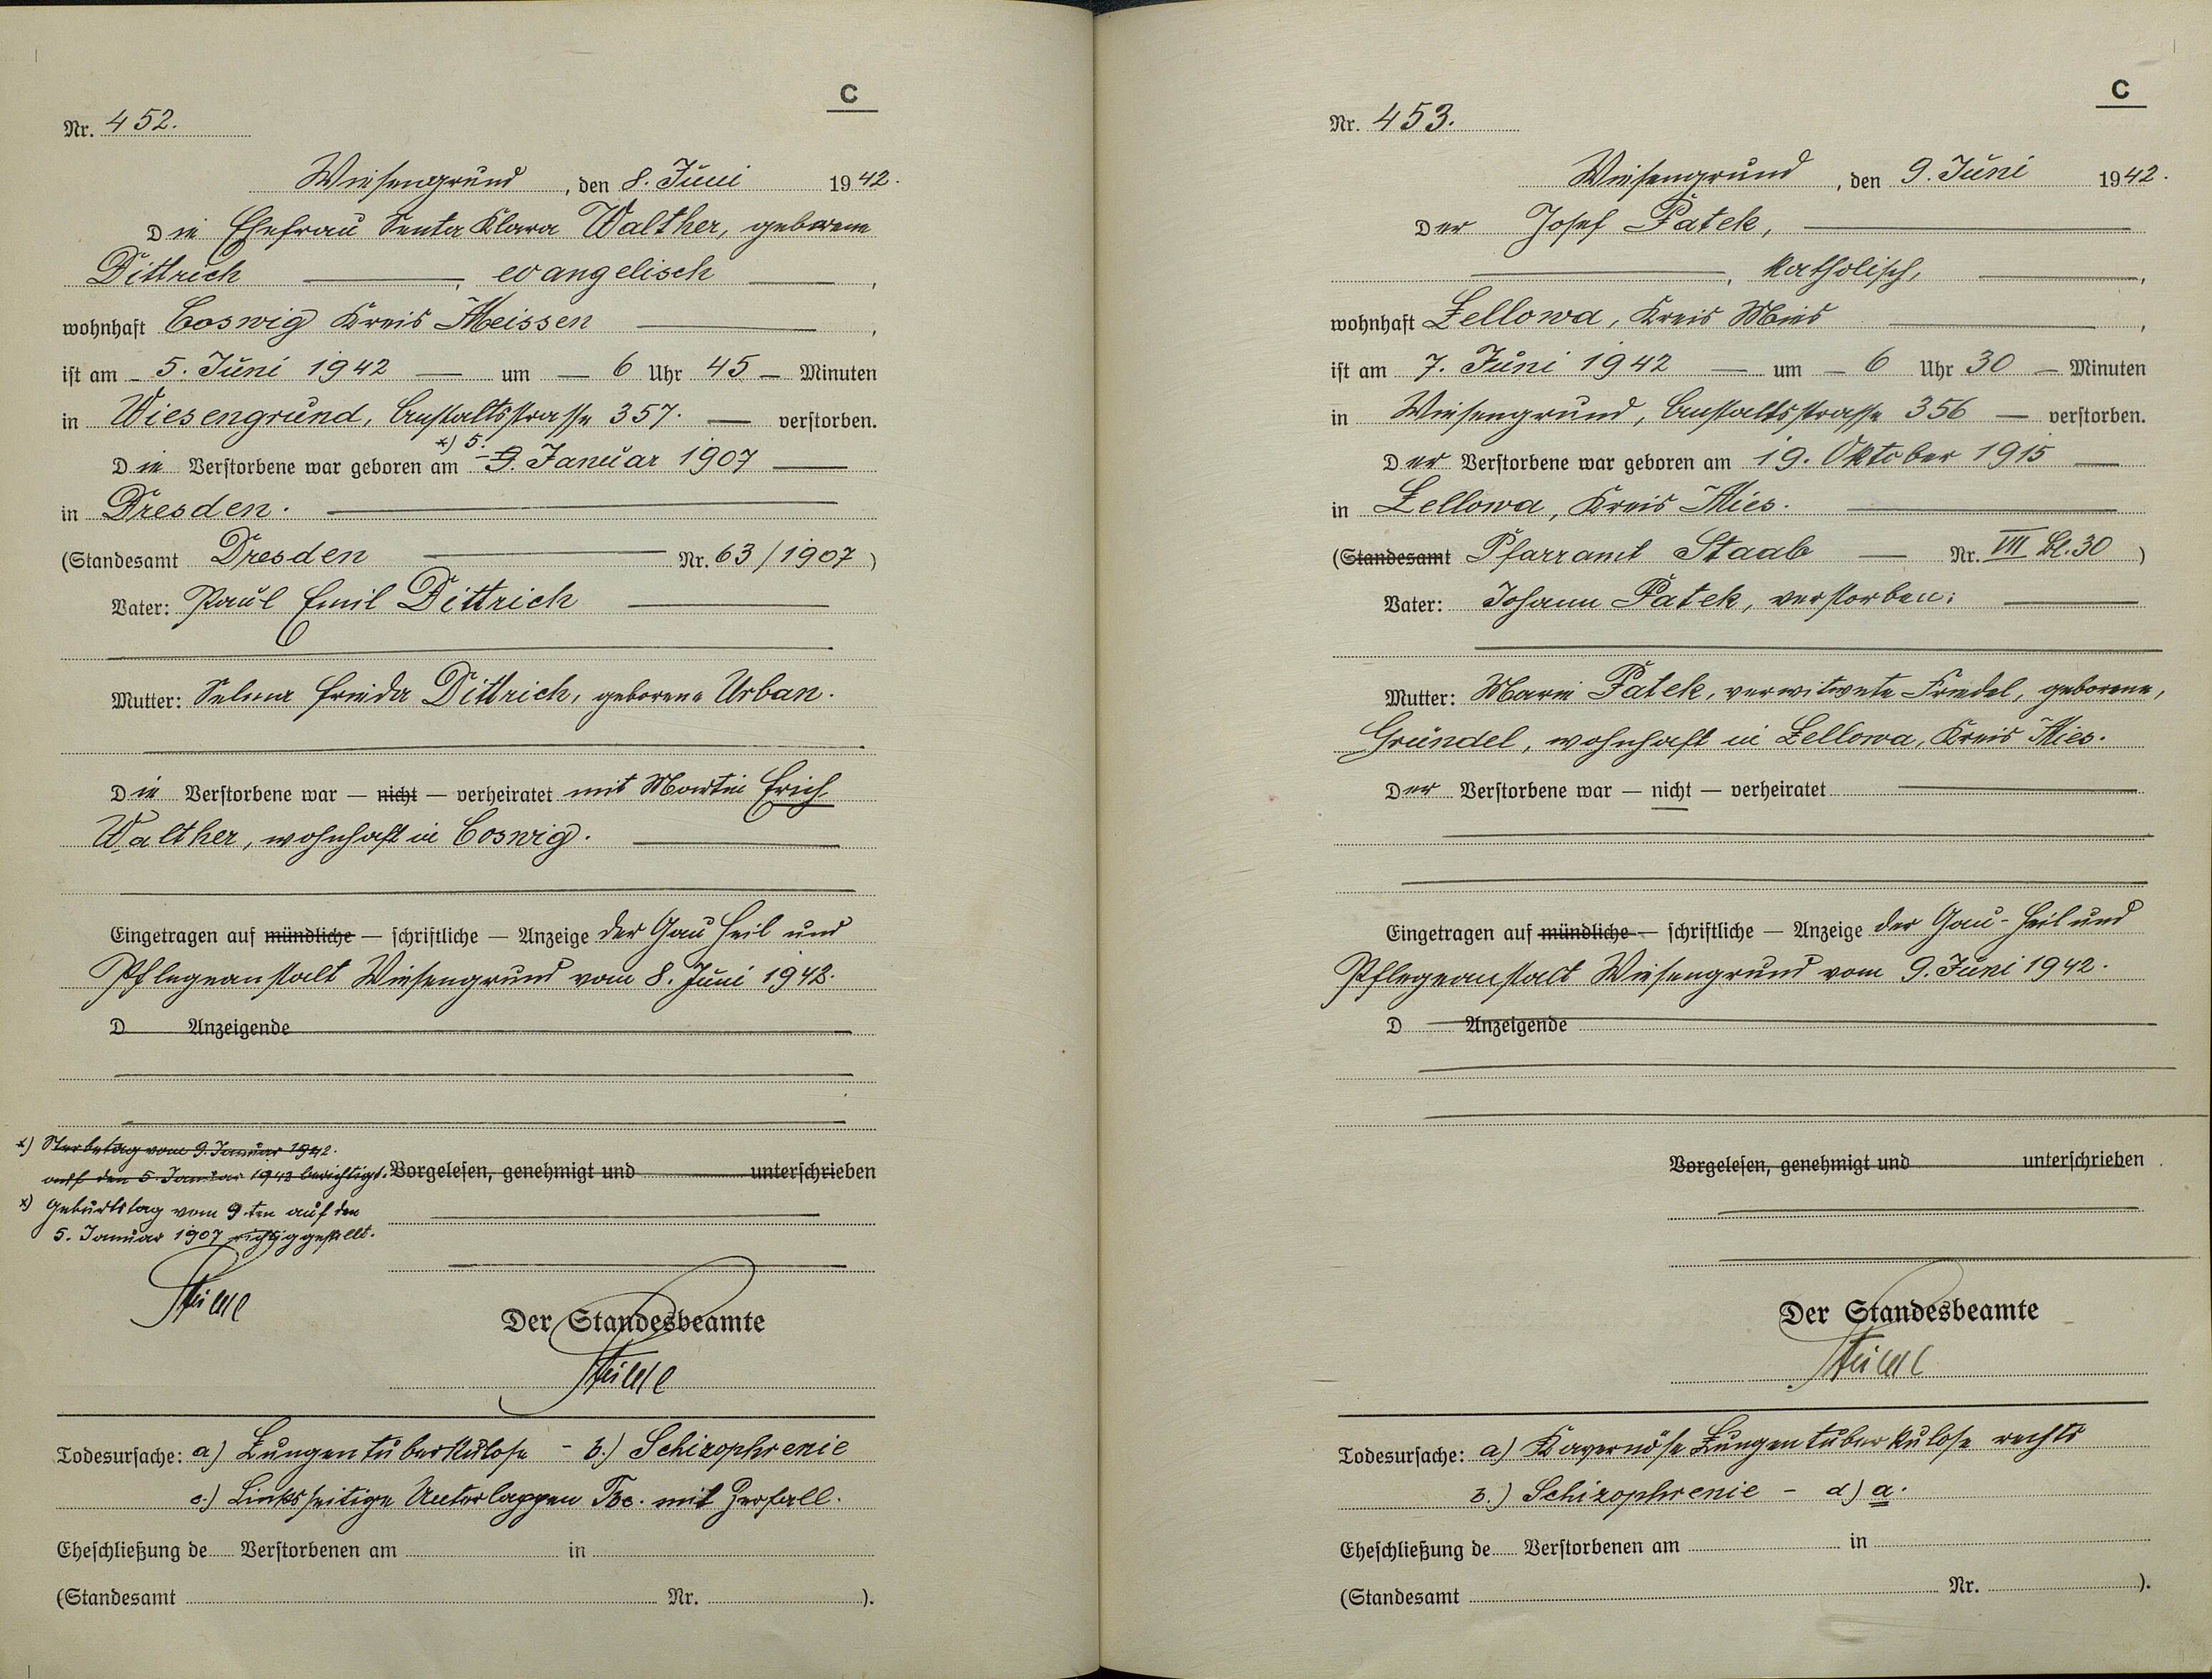 C
Nr. 452.
Wiesengrund, den 8. Juni 1942.
Die Ehefrau Senta Klara Walther, geborene
Dittrich, evangelisch,
wohnhaft Coswig Kreis Meissen,
ist am 5. Juni 1942 um 6 Uhr 45 Minuten
in Wiesengrund, Anstaltsstrasse 357. verstorben.
*) 5.
Die Verstorbene war geboren am 9. Januar 1907
in Dresden.
(Standesamt Dresden Nr. 63/1907)
Vater: Paul Emil Dittrich
Mutter: Selma Frieda Dittrich, geborene Urban.
Die Verstorbene war — nicht — verheiratet mit Martin Erich
Walther, wohnhaft in Coswig.
Eingetragen auf mündliche — schriftliche — Anzeige der Gau Heil und
Pflegeanstalt Wiesengrund vom 8. Juni 1942.
D Anzeigende
x) Sterbetag vom 9. Januar 1942.
auf den 5. Januar 1942 berichtigt.
Vorgelesen, genehmigt und unterschrieben
x) Geburtstag vom 9.ten auf den
5. Januar 1907 richtig gestellt.
Der Standesbeamte
Todesursache: a) Lungentuberkulose - b.) Schizophrenie
c.) Linksseitige Unterlappen Tbc. mit Zerfall.
Eheschließung de Verstorbenen am in
(Standesamt Nr. ).
C
Nr. 453.
Wiesengrund, den 9. Juni 1942.
Der Josef Patek,
, katholisch,
wohnhaft Zellowa, Kreis Mies,
ist am 7. Juni 1942 um 6 Uhr 30 Minuten
in Wiesengrund, Anstaltsstrasse 356 verstorben.
Der Verstorbene war geboren am 19. Oktober 1915
in Zellowa, Kreis Mies.
(Standesamt Pfarramt Staab Nr. VII Bl. 30)
Vater: Johann Patek, verstorben.
Mutter: Marie Patek, verwitwete Friedel, geborene,
Gründel, wohnhaft in Zellowa, Kreis Mies.
Der Verstorbene war — nicht — verheiratet
Eingetragen auf mündliche — schriftliche — Anzeige der Gau-Heil und
Pflegeanstalt Wiesengrund vom 9. Juni 1942.
D Anzeigende
Vorgelesen, genehmigt und unterschrieben
Der Standesbeamte
Todesursache: a) Kavernöse Lungentuberkulose rechts
b.) Schizophrenie - d) a.
Eheschließung de Verstorbenen am in
(Standesamt Nr. ).